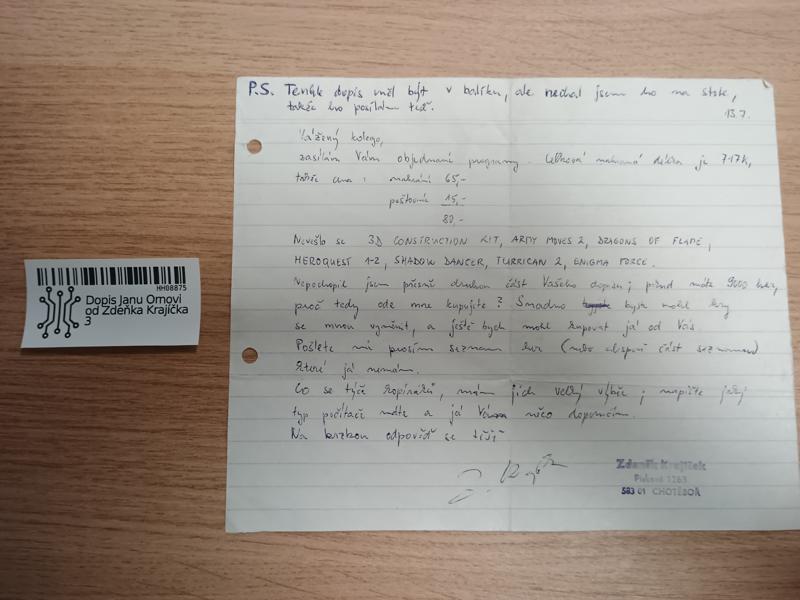 P.S. Tenhle dopis měl být v balíku, ale nechal jsem ho na stole,
takže ho posílám teď.
13.7.
Vážený kolego,
zasílám Vám objednané programy. Celková nahraná délka je 717K,
takže cena: nahrání 65,-
poštovné 15,-
80,-
Nevešlo se 3D CONSTRUCTION KIT, ARMY MOVES 2, DRAGONS OF FLAME,
HEROQUEST 1-2, SHADOW DANCER, TURRICAN 2, ENIGMA FORCE.
Nepochopil jsem přesně druhou část Vašeho dopisu; pokud máte 9000 her,
proč tedy ode mne kupujete? Snadno byste mohl hry
se mnou vyměnit, a ještě bych mohl kupovat já od Vás.
Pošlete mi prosím seznam her (nebo alespoň část seznamu)
které já nemám.
Co se týče kopíráků, mám jich velký výběr; napište jaký
typ počítače máte a já Vám něco doporučím.
Na brzkou odpověď se těší
Z. Krajíček
Zdeněk Krajíček
1263
583 01 CHOTĚBOŘ
HH08875
Dopis Janu Ornovi
od Zdeňka Krajíčka
3